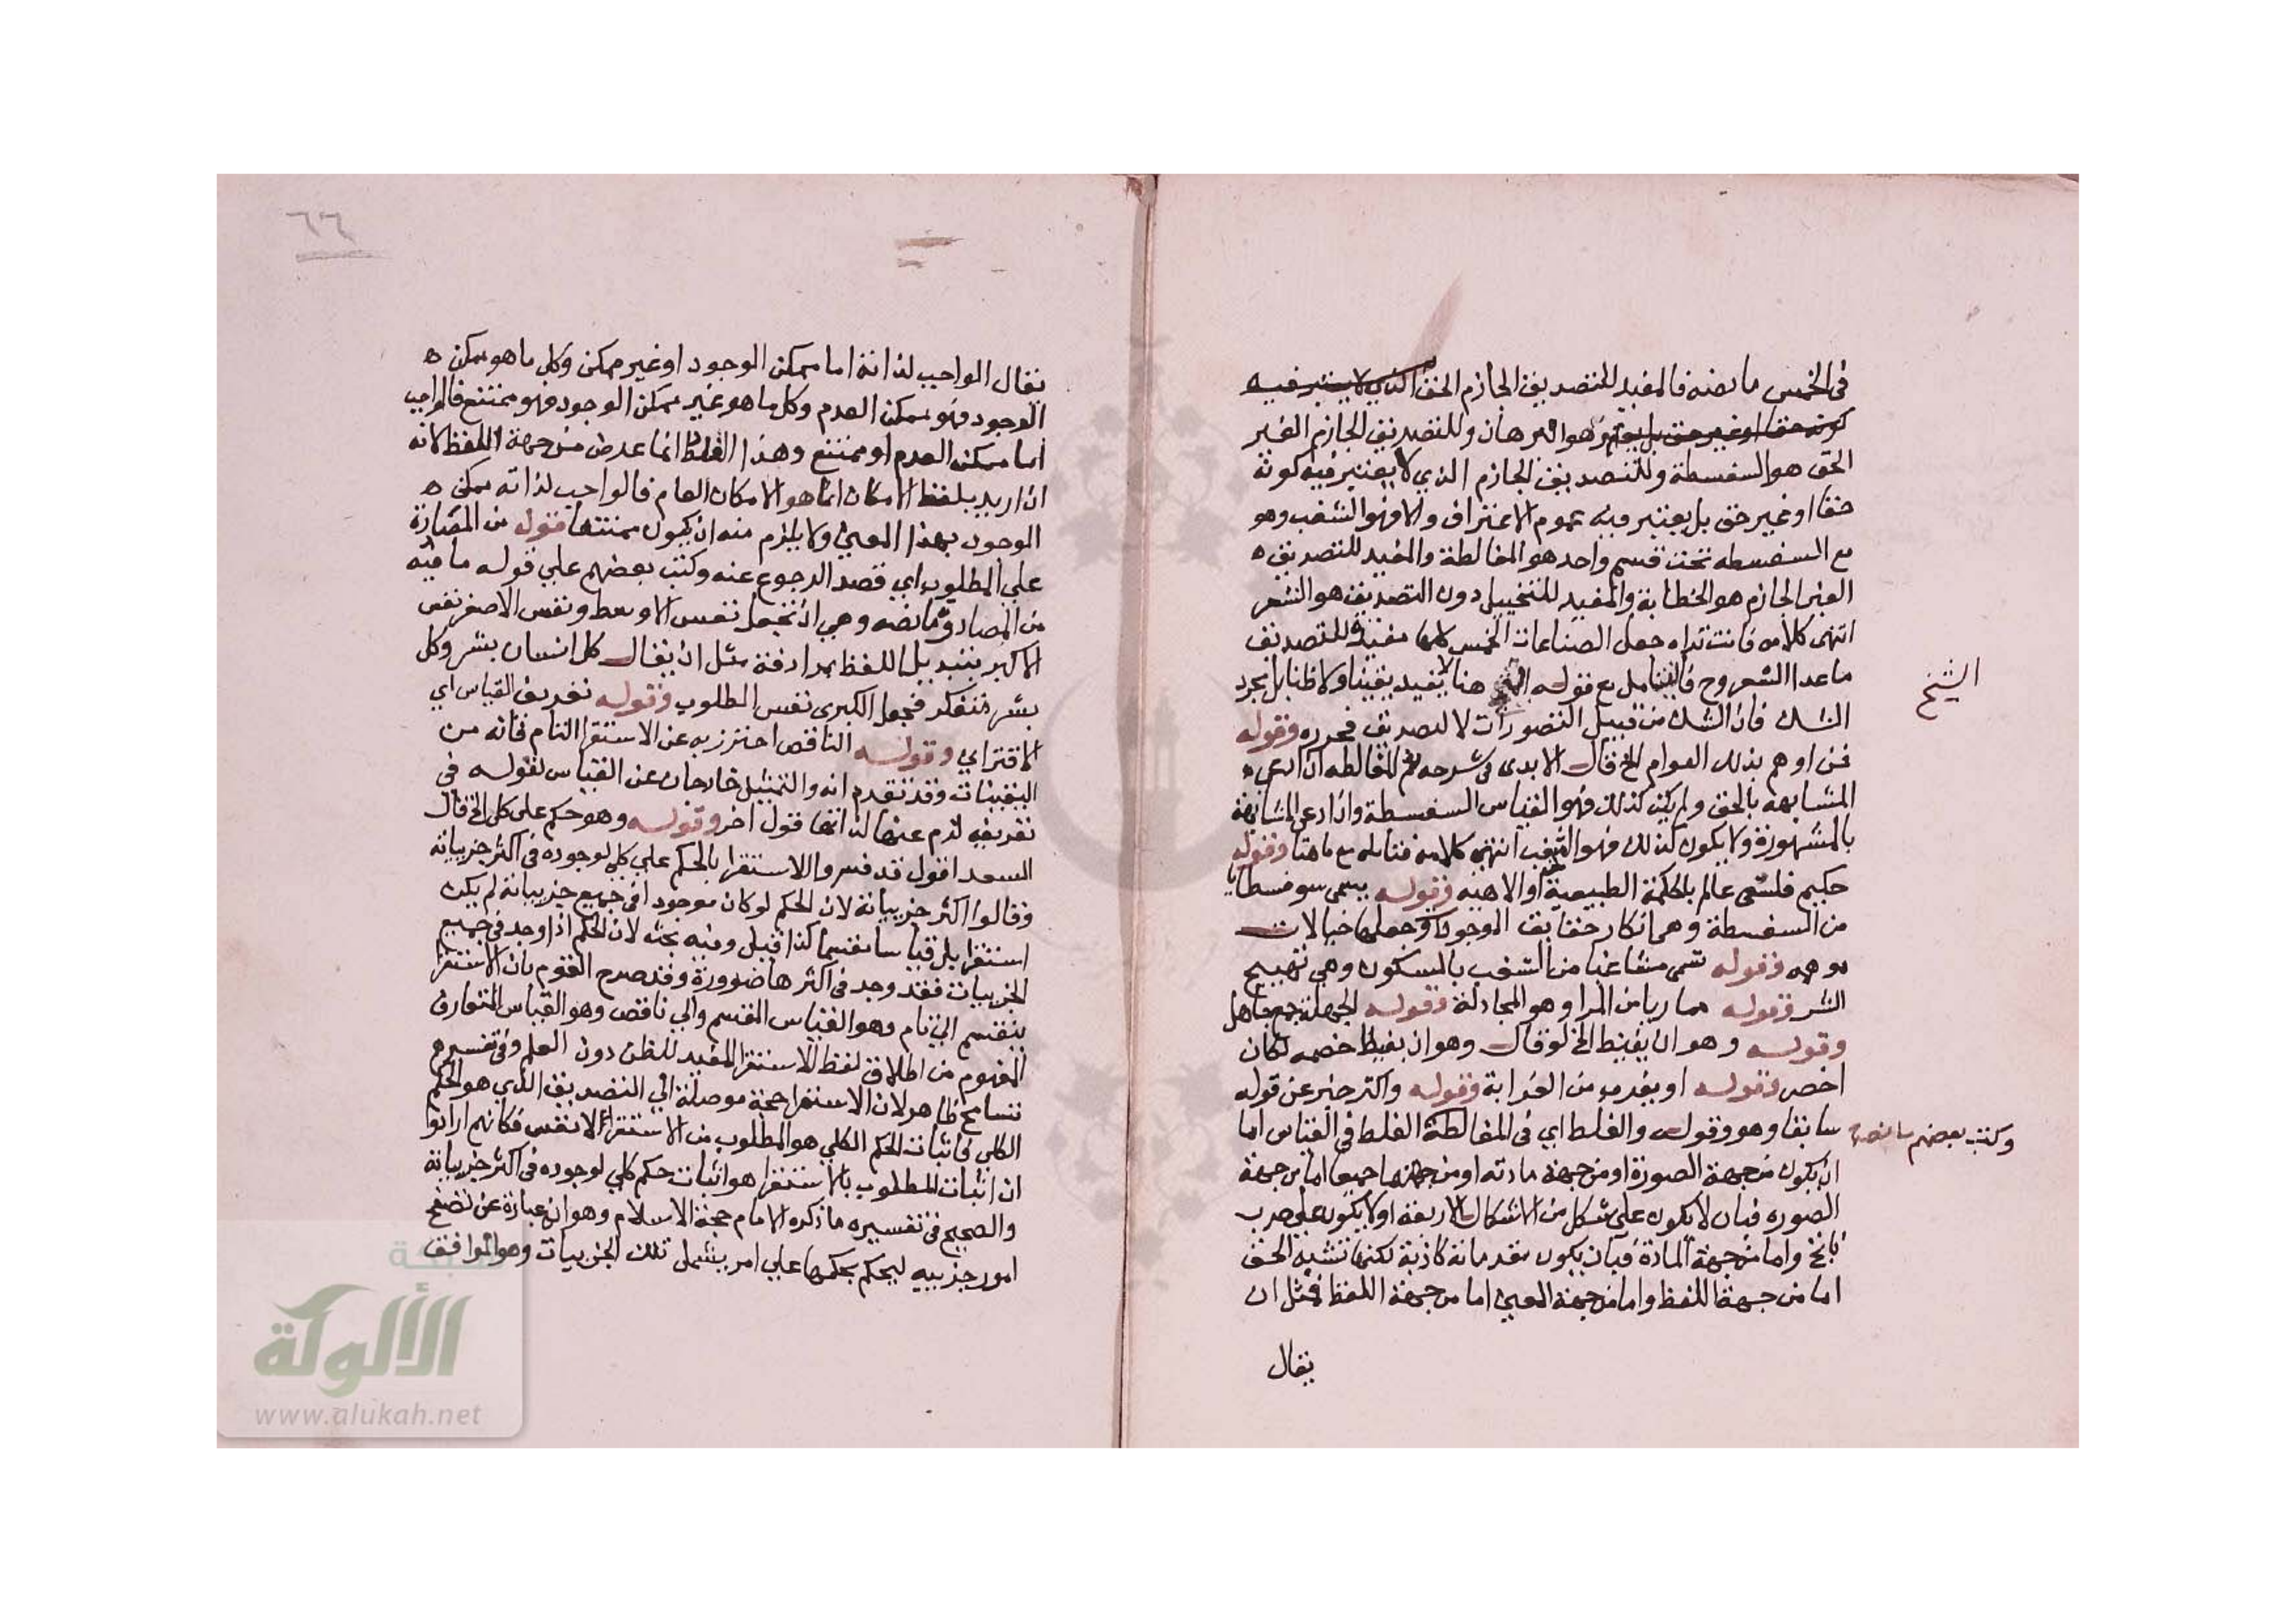 في الخمس ما نصه فالمفيد للتصديق الجازم الحق الذي لا يعتبر فيه
كونه حقا او غير حق بل يعتبر هو البرهان وللتصديق الجازم الغير
الحق هو السفسطة وللتصديق الجازم الذي لا يعتبر فيه كونه
حقا او غير حق بل يعتبر فيه عموم الاعتراف والا فهو الشغب وهو
مع السفسطه تحت قسم واحد هو المغالطة والمفيد للتصديق ه
الغير الجازم هو الخطابة والمفيد للتخييل دون التصديق هو الشعر
انتهى كلامه فانت تراه جعل الصناعات الخمس كلها مفيدة للتصديق
ما عدا الشعر وح فليتامل مع قوله هنا لا يفيد يقينا ولا ظنا بل مجرد
الشيخ
الشك فان الشك من قبيل التصورات لا التصديق فحرره وقوله
فمن اوهم بذلك العوام الخ قال الابدى في شرحه ثم المغالطه ان ادعي
المشابهه بالحق ولم يكن كذلك فهو القياس السفسطة وان ادعي المشابهة
بالمشهورة ولا يكون كذلك فهو الشغب انتهى كلامه فتامله مع ما هنا وقوله
حكيم فلسفى عالم بالحكمة الطبيعية والالاهيه وقوله يسمى سوفسطايا
من السفسطة وهي انكار حقايق الوجود وجعلها خيالات
موهمه وقوله تسمى مشاغبا من الشغب بالسكون وهي تهييج
الشر وقوله مماريا من المرا وهو المجادلة وقوله الجهلة جمع جاهل
وقوله وهو ان يغيظ الخ لو قال وهو ان يغيظ خصمه لكان
اخصر وقوله او بغدب من الغرابة وقوله واكتر خبر عن قوله
سابقا وهو وقوله والغلط اي في المغالطة الغلط في القياس اما
وكتب بعضهم ما نصه
ان يكون من جهة الصورة او من جهة مادته او من جهتهما جميعا اما من جهة
الصوره فبان لا يكون على شكل من الاشكال الاربعة او لا يكون على ضرب
ناتج واما من جهة المادة فبان يكون مقدماته كاذبة لكنها تشبه الحق
اما من جهة اللفظ واما من جهة المعنى اما من جهة اللفظ فمثل ان
يقال
٦٦
يقال الواجب لذاته اما ممكن الوجود او غير ممكن وكل ما هو ممكن ه
الوجود فهو ممكن العدم وكل ما هو غير ممكن الوجود فهو ممتنع فالواجب
اما ممكن العدم او ممتنع وهذا الغلط انما عرض من جهة اللفظ لانه
ان اريد بلفظ الامكان انما هو الامكان العام فالواجب لذاته ممكن ه
الوجود بهذا المعنى ولا يلزم منه ان يكون ممتنعا قوله من المصادرة
على المطلوب اي قصد الرجوع عنه وكتب بعضهم على قوله ما فيه
من المصادرة ما نصه وهي ان تجعل نفس الاوسط ونفس الاصغر نفس
الاكبر بتبديل اللفظ بمرادفة مثل ان يقال كل انسان بشر وكل
بشر متفكر فجعل الكبرى نفس المطلوب وقوله تعريف القياس اي
الاقتراني وقوله الناقص احترز به عن الاستقرا التام فانه من
اليقينات وقد تقدم انه والتمثيل خارجان عن القياس لقوله في
تعريفه لزم عنها لذاتها قول اخر وقوله وهو حكم على كلي الخ قال
السعد اقول قد فسروا الاستقرا بالحكم على كلي لوجوده في اكثر جزيياته
وقالوا اكثر جزيياته لان الحكم لو كان موجودا في جميع جزيياته لم يكن
استقرا بل قياسا مقسما كذا قيل وفيه بحث لان الحكم اذا وجد في جميع
الجزييات فقد وجد في اكثرها ضرورة وقد صرح القوم بان الاستقرا
ينقسم الى تام وهو القياس المقسم والى ناقص وهو القياس المتعارف
المفهوم من اطلاق لفظ الاستقرا المفيد للظن دون العلم وفي تفسيرهم
تسامح ظاهر لان الاستقرا حجة موصلة الى التصديق الذي هو الحكم
الكلي في اثبات الحكم الكلي هو المطلوب من الاستقراء لا نفس فكانهم ارادوا
ان اثبات المطلوب بالاستقرا هو اثبات حكم كلي لوجوده في اكثر جزيياته
والصحيح في تفسيره ما ذكره الامام حجة الاسلام وهو انه عبارة عن تصفح
امور جزييه ليحكم بحكمها على امر يشمل تلك الجزييات وهو الموافق
شبكة
الألوكة
www.alukah.net